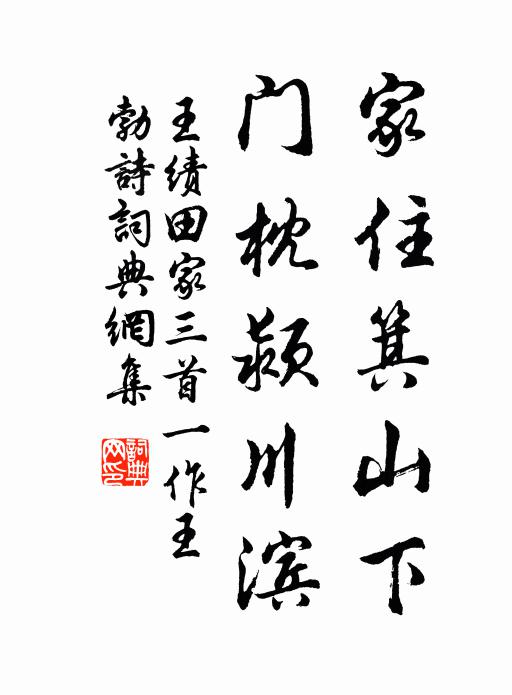 家住箕山下
门枕颍川滨
王绩田家三首一作王
勃詩詞典網集
詞典
网印